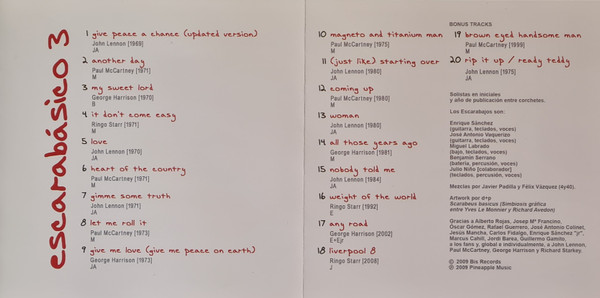 escarabásico 3
1 give peace a chance (updated version)
John Lennon [1969]
JA
2 another day
Paul McCartney [1971]
M
3 my sweet lord
George Harrison [1970]
B
4 it don't come easy
Ringo Starr [1971]
M
5 love
John Lennon [1970]
JA
6 heart of the country
Paul McCartney [1971]
M
7 gimme some truth
John Lennon [1971]
JA
8 let me roll it
Paul McCartney [1973]
M
9 give me love (give me peace on earth)
George Harrison [1973]
JA
10 magneto and titanium man
Paul McCartney [1975]
M
11 (just like) starting over
John Lennon [1980]
JA
12 coming up
Paul McCartney [1980]
M
13 woman
John Lennon [1980]
JA
14 all those years ago
George Harrison [1981]
M
15 nobody told me
John Lennon [1984]
JA
16 weight of the world
Ringo Starr [1992]
E
17 any road
George Harrison [2002]
E+Ejr
18 liverpool 8
Ringo Starr [2008]
J
BONUS TRACKS
19 brown eyed handsome man
Paul McCartney [1999]
M
20 rip it up / ready teddy
John Lennon [1975]
JA
Solistas en iniciales
y año de publicación entre corchetes.
Los Escarabajos son:
Enrique Sánchez
(guitarra, teclados, voces)
José Antonio Vaquerizo
(guitarra, teclados, voces)
Miguel Labrado
(bajo, teclados, voces)
Benjamín Serrano
(batería, percusión, voces)
Julio Niño [colaborador]
(teclados, percusión, voces)
Mezclas por Javier Padilla y Félix Vázquez (4y40).
Artwork por
Scarabeus basicus (Simbiosis gráfica
entre Yves Le Monnier y Richard Avedon)
Gracias a Alberto Rojas, Josep Mª Francino,
Óscar Gómez, Rafael Guerrero, José Antonio Colinet,
Jesús Mancha, Carlos Fidalgo, Enrique Sánchez "jr",
Marcus Cahill, Jordi Barea, Guillermo Gamito,
a los fans y, global e individualmente, a John Lennon,
Paul McCartney, George Harrison y Richard Starkey.
℗ 2009 Bis Records
© 2009 Pineapple Music